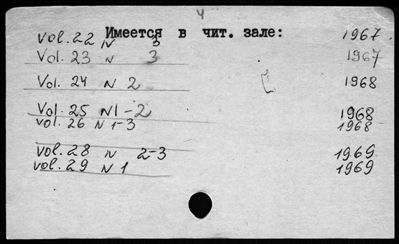 4
Имеется в чит. зале:
Vol. 22 N 3 1967
Vol. 23 N 3 1967
Vol. 24 N 2 1968
Vol. 25 N1-2 1968
Vol. 26 N 1-3 1968
vol. 28 N 2-3 1969
vol. 29 N 1 1969